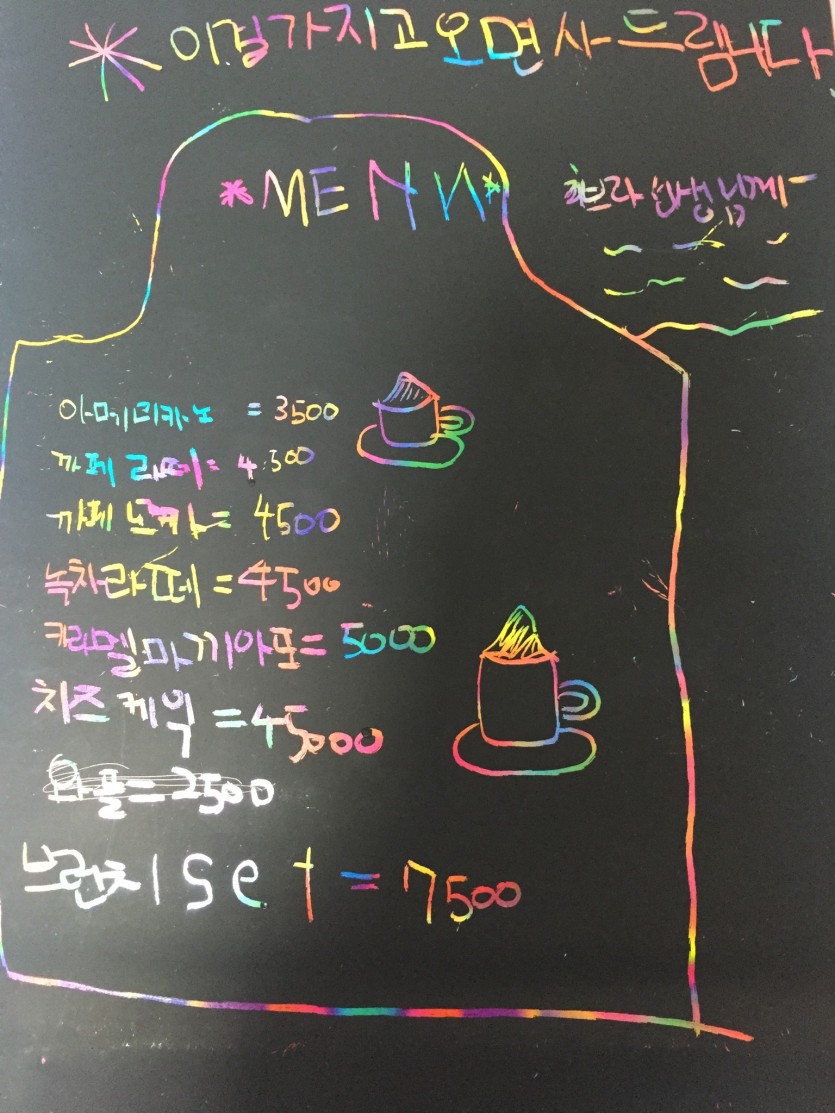 * 이걸가지고오면 사드립니다
*MENU*
브라 선생님께
아메리카노 = 3500
까페 라떼 = 4500
까페 모카 = 4500
녹차라떼 = 4500
카라멜마끼아또 = 5000
치즈 케익 = 45000
와플 = 2500
브런치 set = 7500